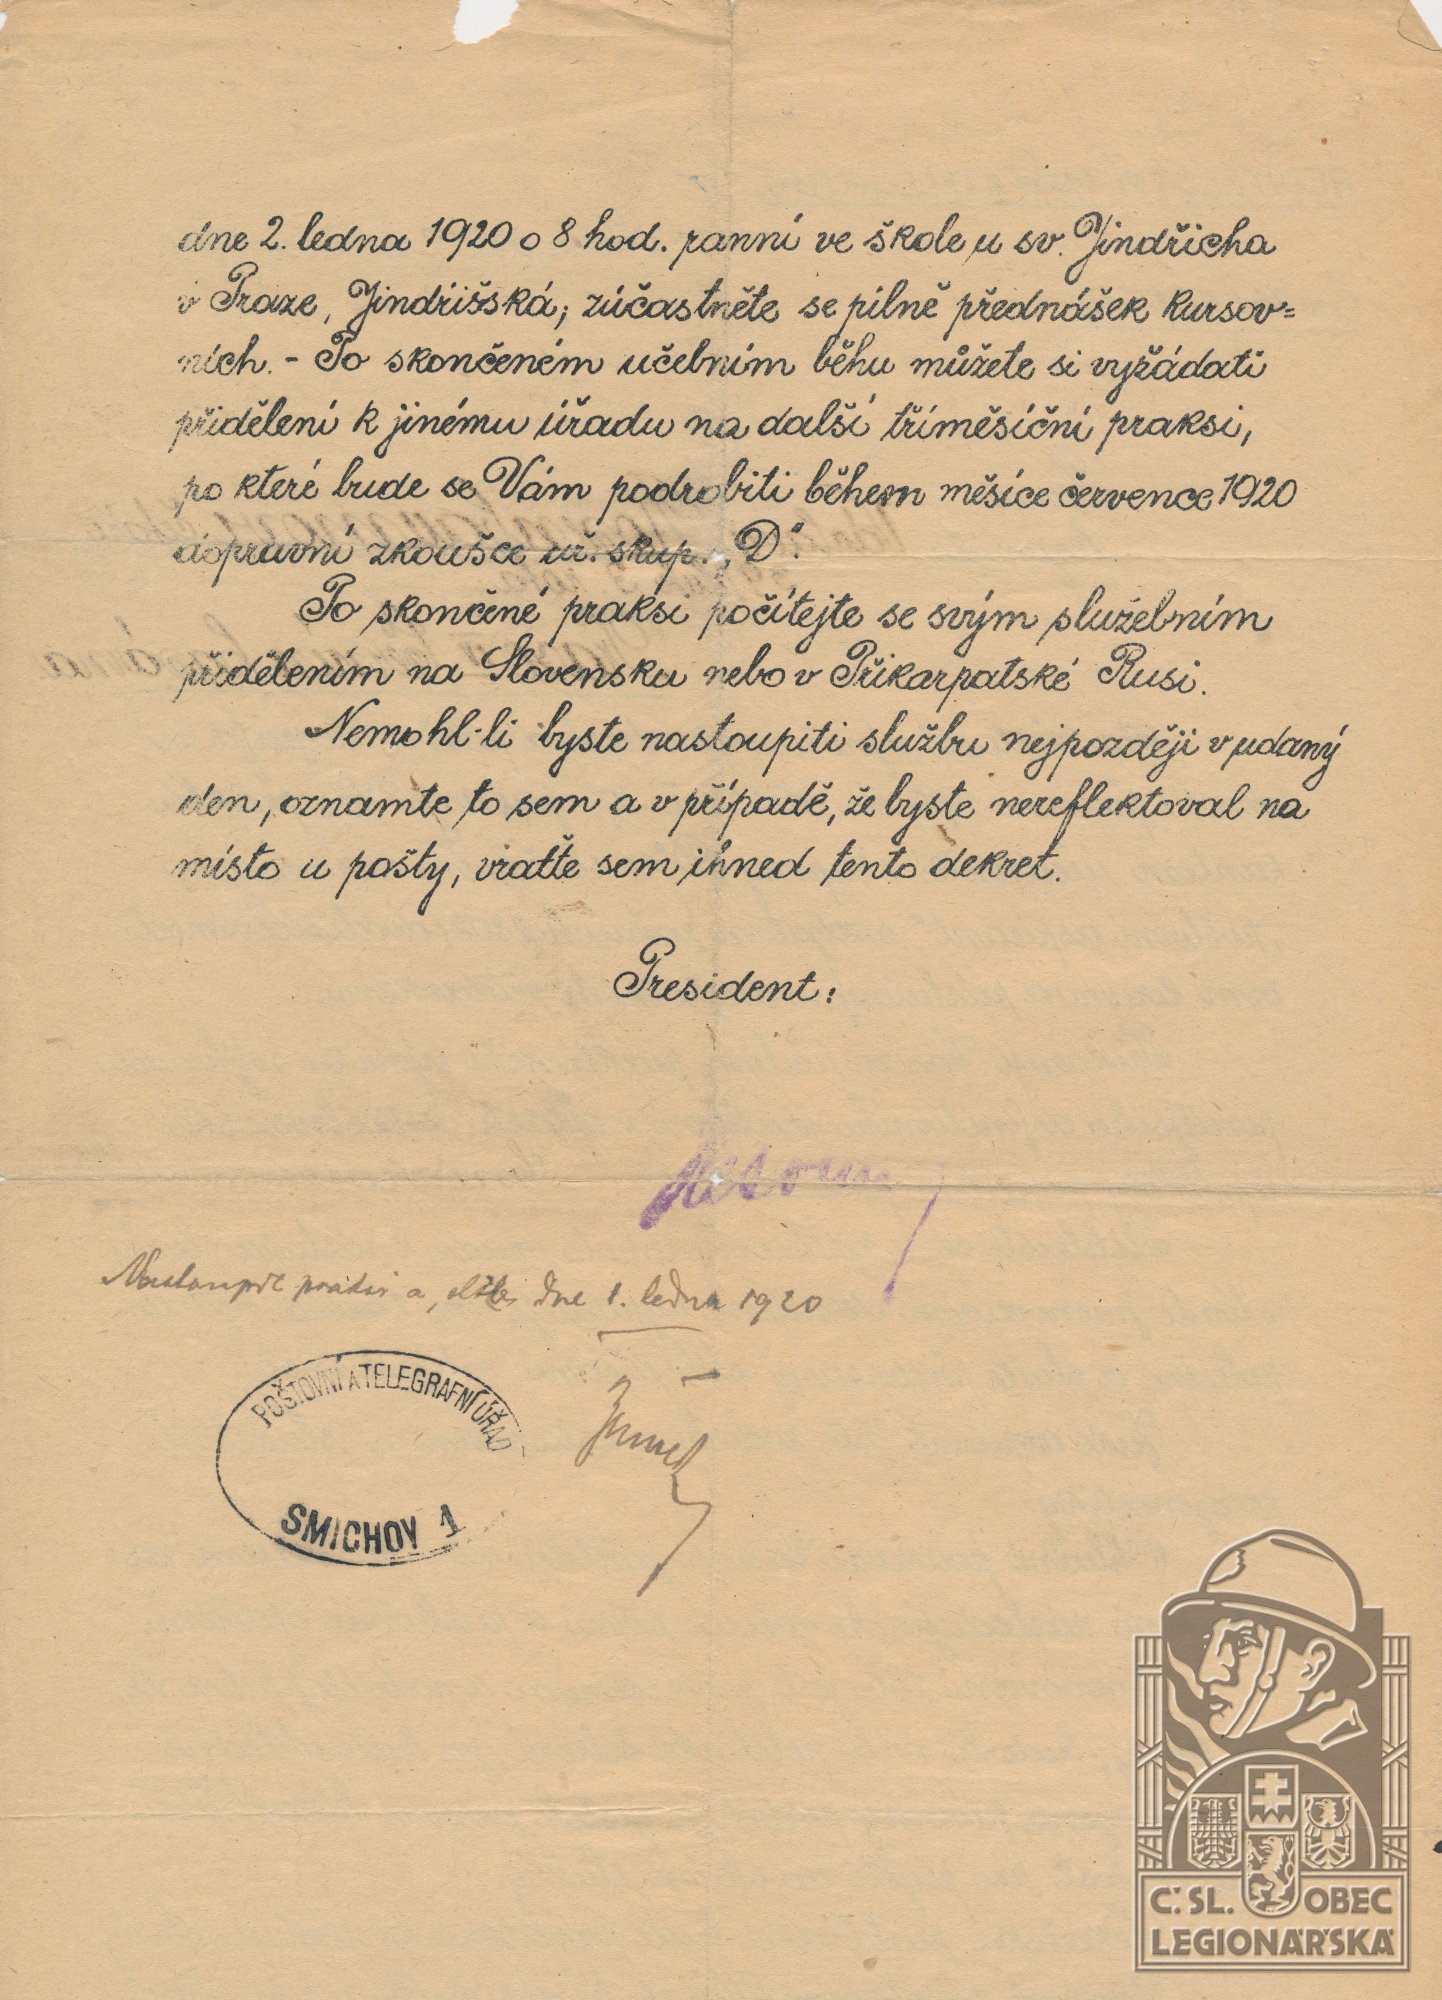 dne 2. ledna 1920 o 8 hod. ranní ve škole u sv. Jindřicha
v Praze, Jindřišská; zúčastněte se pilně přednášek kursov=
ních. - Po skončeném učebním běhu můžete si vyžádati
přidělení k jinému úřadu na další tříměsíční praksi,
po které bude se Vám podrobiti během měsíce července 1920
dopravní zkoušce uř. skup. „D“.
Po skončené praksi počítejte se svým služebním
přidělením na Slovensku nebo v Přikarpatské Rusi.
Nemohl-li byste nastoupiti službu nejpozději v udaný
den, oznamte to sem a v případě, že byste nereflektoval na
místo u pošty, vraťte sem ihned tento dekret.
President:
dne 1. ledna 1920
POŠTOVNÍ A TELEGRAFNÍ ÚŘAD
SMICHOV 1
Č. SL. OBEC
LEGIONÁŘSKÁ